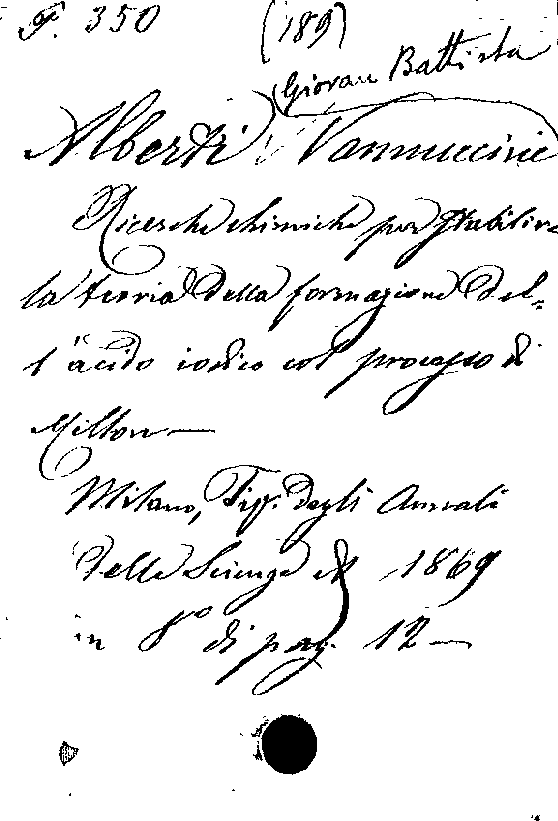 F. 350 (189)
Giovan Battista
Alberti Vannuccini
Ricerche chimiche per stabilire
la teoria della formazione del-
l'acido iodico col processo di
Millon —
Milano, Tip. degli Annali
delle Scienze 1869
in 8º di pag. 12 —